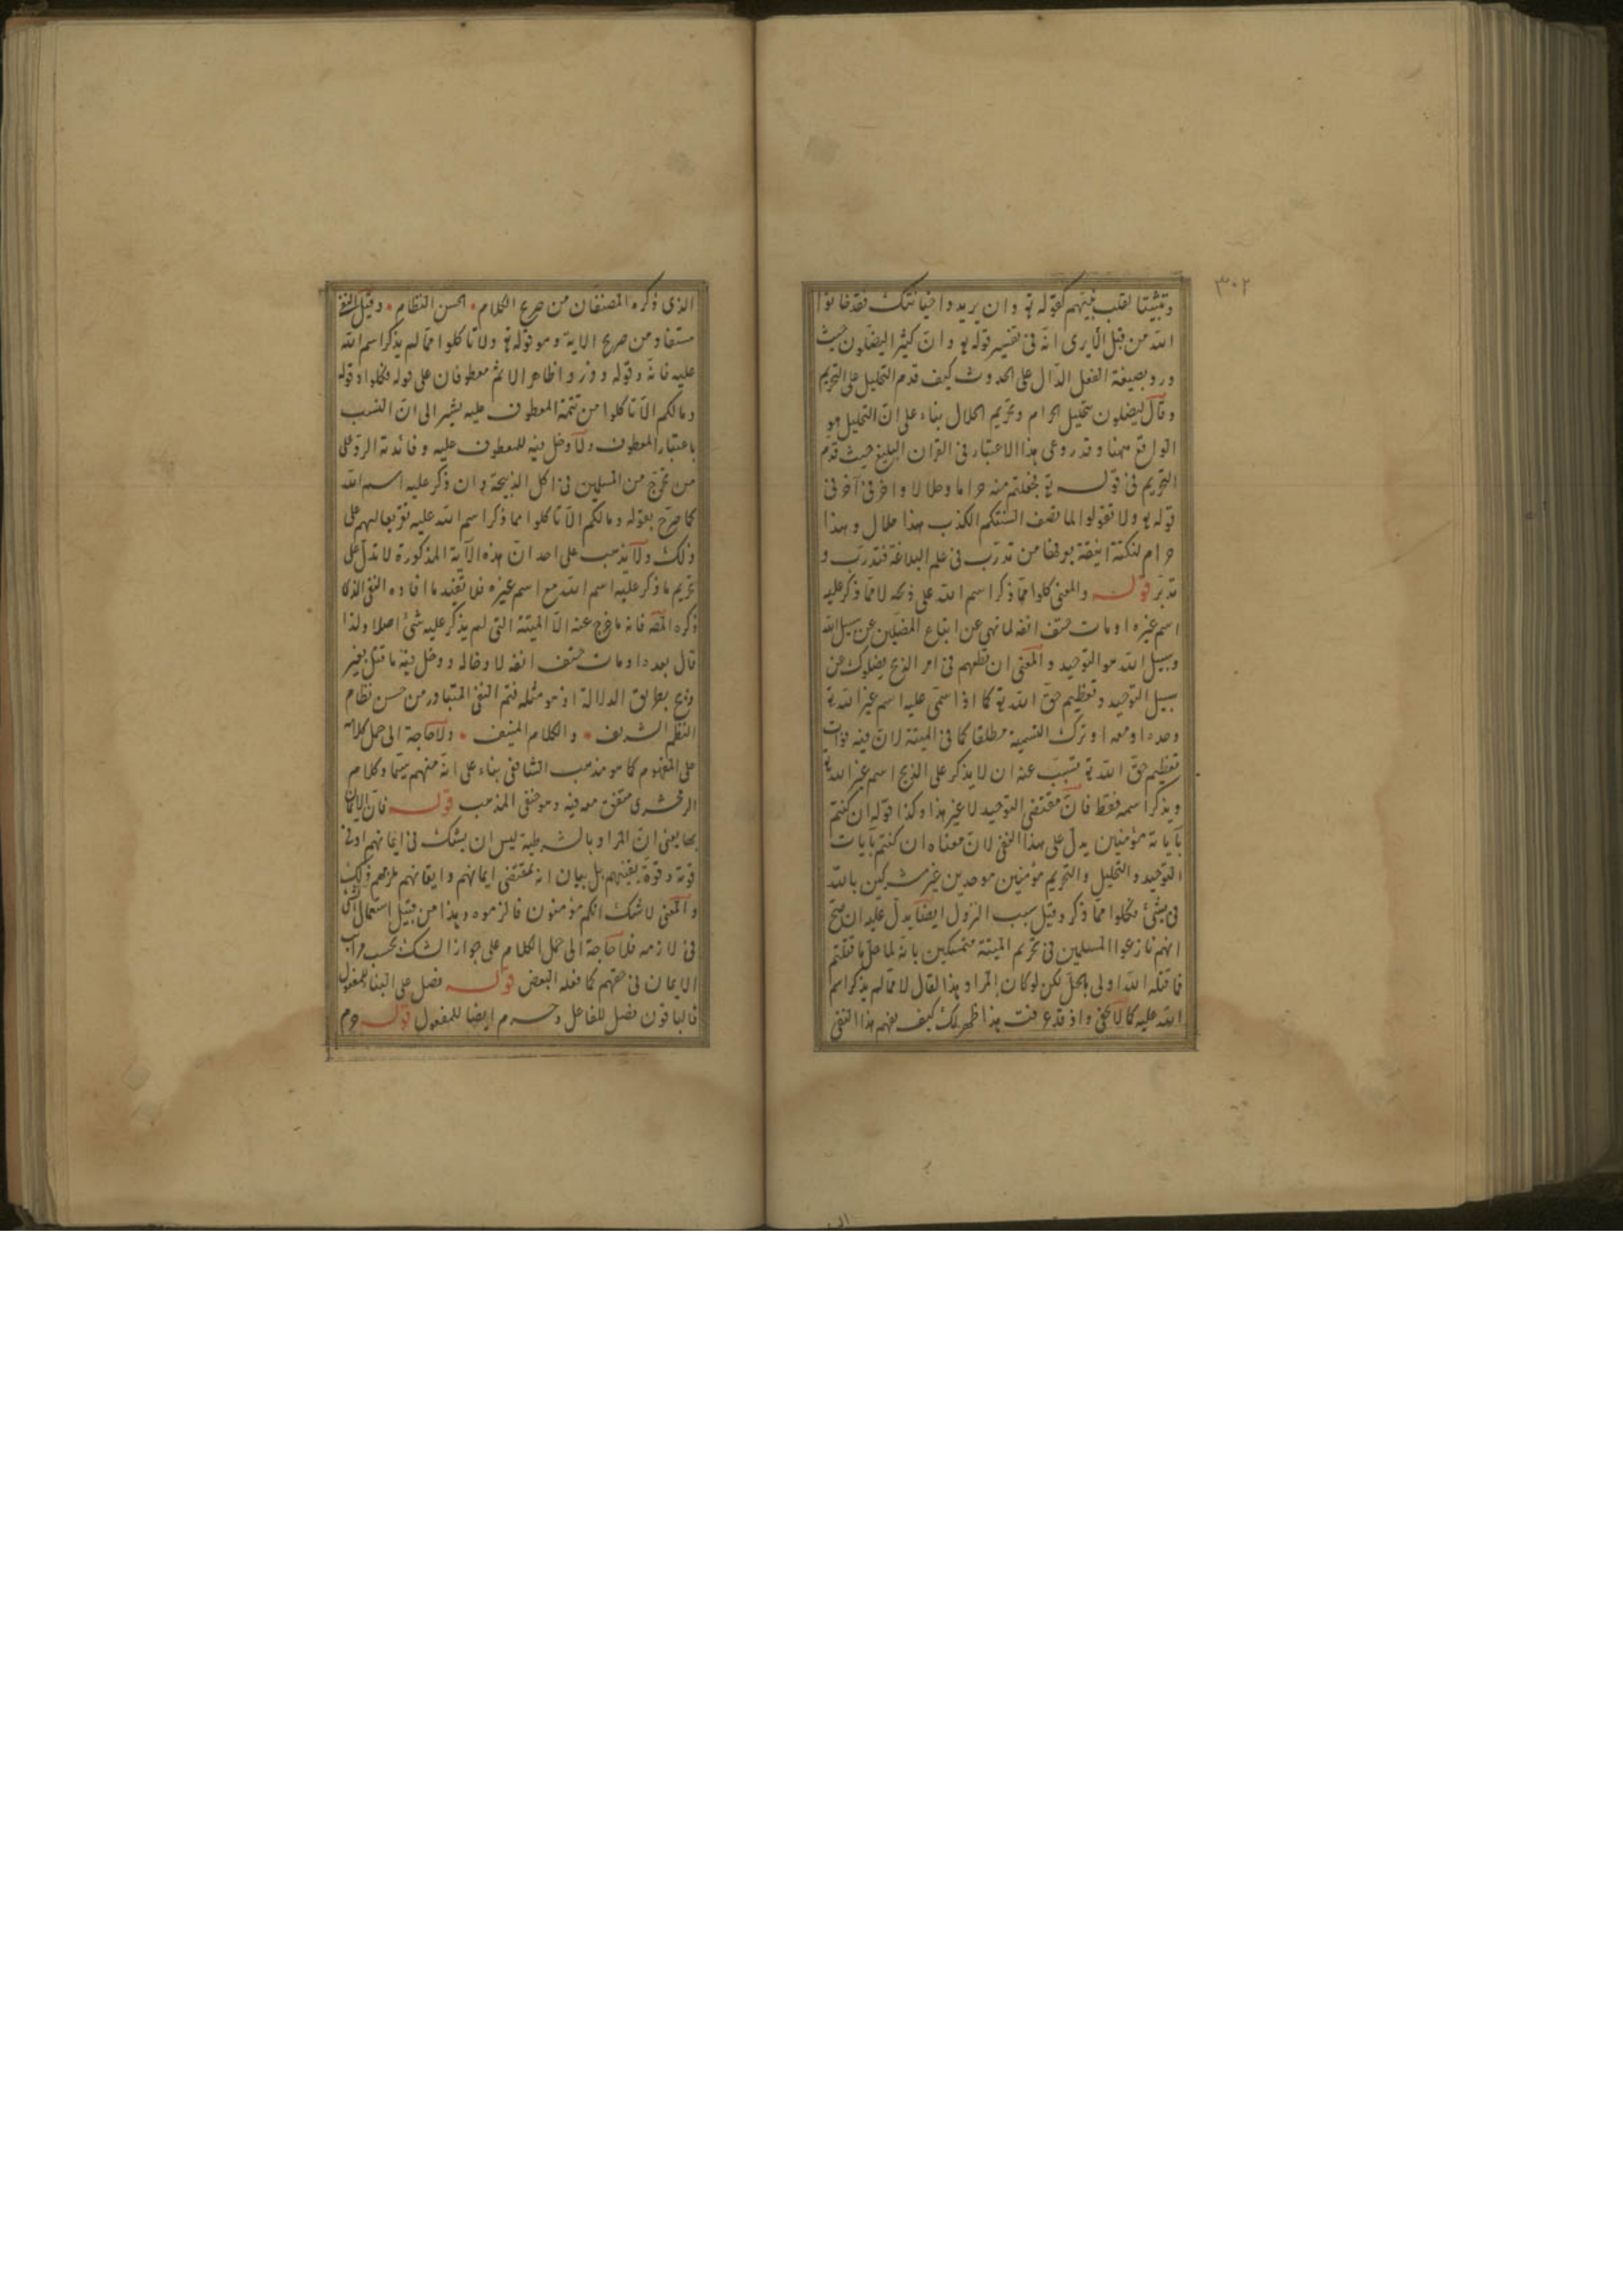 ٣٠٢
وتثبيتا لقلب نبيهم كقوله تع وان يريدوا خيانتك فقد خانوا
الله من قبل الا يرى انه في تفسير قوله تع وان كثيرا ليضلون حيث
ورد بصيغة الفعل الدال على الحدوث كيف قدم التحليل على التحريم
وقال ليضلون بتحليل الحرام وتحريم الحلال بناء على ان التحليل هو
الواقع ههنا وقد روعى هذا الاعتبار في القران البليغ حيث قدم
التحريم في قوله تع فجعلتم منه حراما وحلالا واخر في آخر في
قوله تع ولا تقولوا لما تصف السنتكم الكذب هذا حلال وهذا
حرام لنكتة انيقة يعرفها من تدرب في علم البلاغة فتدرب و
تدبر قوله والمعنى كلوا مما ذكر اسم الله على ذبحه لا مما ذكر عليه
اسم غيره او مات حتف انفه لما نهى عن اتباع المضلين عن سبيل الله
وسبيل الله هو التوحيد والمعنى ان تطعهم في امر الذبح يضلوك عن
سبيل التوحيد وتعظيم حق الله تع كما اذا سمى عليه اسم غير الله تع
وحده او معه او ترك التسمية مطلقا كما في الميتة لان فيه فوات
تعظيم حق الله تع فتسبب عنه ان لا يذكر على الذبح اسم غير الله تع
ويذكر اسمه فقط فان مقتضى التوحيد لا غير هذا وكذا قوله ان كنتم
بآياته مؤمنين يدل على هذا النفي لان معناه ان كنتم بآيات
التوحيد والتحليل والتحريم مؤمنين موحدين غير مشركين بالله
في شئ فكلوا مما ذكر وقيل سبب النزول ايضا يدل عليه ان صح
انهم نازعوا المسلمين في تحريم الميتة متمسكين بانه لما حل ما قتلتم
فما قتله الله اولى بالحل لكن لو كان المراد هذا لقال لا مما لم يذكر اسم
الله عليه كما لا يخفى واذ قد عرفت هذا ظهر لك كيف يفهم هذا النفي
الذي ذكره المصنفان من صرح الكلام • لحسن النظام • وقيل النفي
مستفاد من صريح الاية وهو قوله تع ولا تاكلوا مما لم يذكر اسم الله
عليه فانه وقوله وذروا ظاهر الاثم معطوفان على قوله فكلوا وقوله
وما لكم الا تاكلوا من تتمة المعطوف عليه يشير الى ان التسبب
باعتبار المعطوف ولا دخل فيه للمعطوف عليه وفائدته الرد على
من تحرج من المسلمين في اكل الذبيحة وان ذكر عليه اسم الله
كما صرح بقوله وما لكم الا تاكلوا مما ذكر اسم الله عليه تقريعا لهم على
ذلك ولا يذهب على احد ان هذه الآية المذكورة لا تدل على
تحريم ما ذكر عليه اسم الله مع اسم غيره فلا تفيد ما افاده النفي الذى
ذكره المص فانه ما خرج عنه الا الميتة التي لم يذكر عليه شئ اصلا ولذا
قال بعده او مات حتف انفه لا وحاله ودخل فيه ما قتل بغير
ذبح بطريق الدلالة اذ هو مثله فتم النفي المتبادر من حسن نظام
النظم الشريف • والكلام المنيف • ولا حاجة الى حمل كلامه
على المفهوم كما هو مذهب الشافعي بناء على انه منهم سيما وكلام
الزمخشرى متفق معه فيه وهو حنفى المذهب قوله فان الايمان
بها يعني ان المراد بالشرطية ليس ان يشك في ايمانهم او في
قوته وقوة يقينهم بل بيان ان مقتضى ايمانهم وايقانهم ذلك
والمعنى لا شك انكم مؤمنون فالزموه وهذا من قبيل استعمال الشئ
في لازمه فلا حاجة الى حمل الكلام على جواز الشك بحسب مراتب
الايمان في حقهم كما فعله البعض قوله فصل على البناء للمفعول
فالباقون فصل للفاعل وحرم ايضا للمفعول قوله حرم